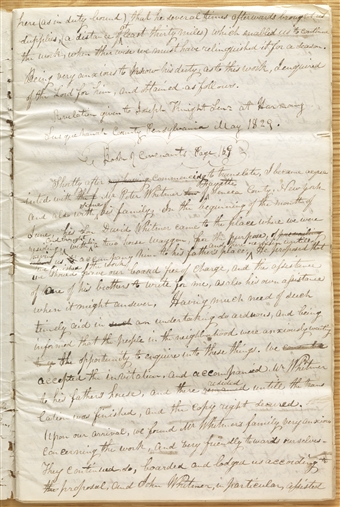 here (as in duty bound) that he several times afterwards brought us
supplies, a distance of at least thirty miles) which enabled us to continue
the work, when otherwise we must have relinquished it for a season.
Being very anxious to know his duty, as to this work, I enquired
of the Lord for him, and obtained as follows.
Revelation given to Joseph Knight Senr at Harmony
Susquehanna County Pensylvania May 1829.
Book of Covenants Page 169
Shortly after commencing to translate, I became acquainted
with Mr Peter Whitmer of Fayette, Seneca County, New York
and also with his family, In the beginning of the month of
June, his son David Whitmer came to the place where we were
residing, and brought with him a two horse waggon, for the purpose of having
us accompany him to his fathers place and
He proposed that
we should have our board free of charge, and the assistance
of one of his brothers to write for me, as also his own assistance
when it might answer. Having much need of such
timely aid in an undertaking so arduous, and being
informed that the people in the neighborhood were anxiously awaiting
the opportunity to enquire into these things. We
accepted the invitation. and accompanied Mr Whitmer
to his fathers house, and there resided untill the translation
was finished, and the copy right secured.
Upon our arrival, we found Mr Whitmers family very anxious
concerning the work, and very friendly toward ourselves.
They continued so, boarded and lodged us according to
the proposal, and John Whitmer, in particular, assisted